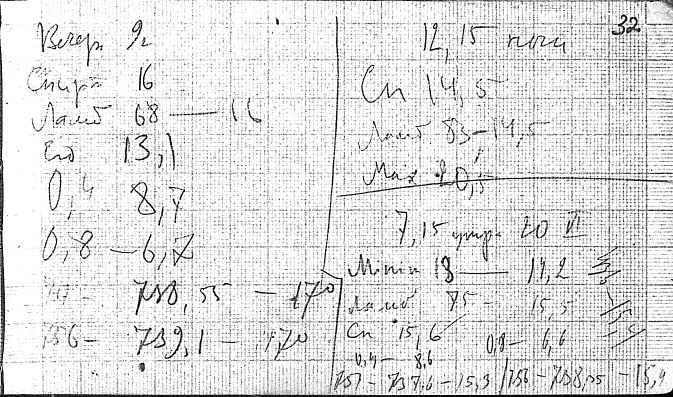 32
Вечер 9
Спирт 16
Ламб 68 — 16
13,1
0,4 8,7
0,8 — 6,7
738,55 — 170
756 — 739,1 — 170
12,15 ночи
Сп 14,5
Ламб 83 — 14,5
Max 20,5
7,15 утра 20 VI
Minim 13 — 14,2
Ламб 75 — 15,5
Сп 15,6 0,8 — 6,6
0,4 — 8,6
757 — 737,6 — 15,3 / 756 — 738,55 — 15,4